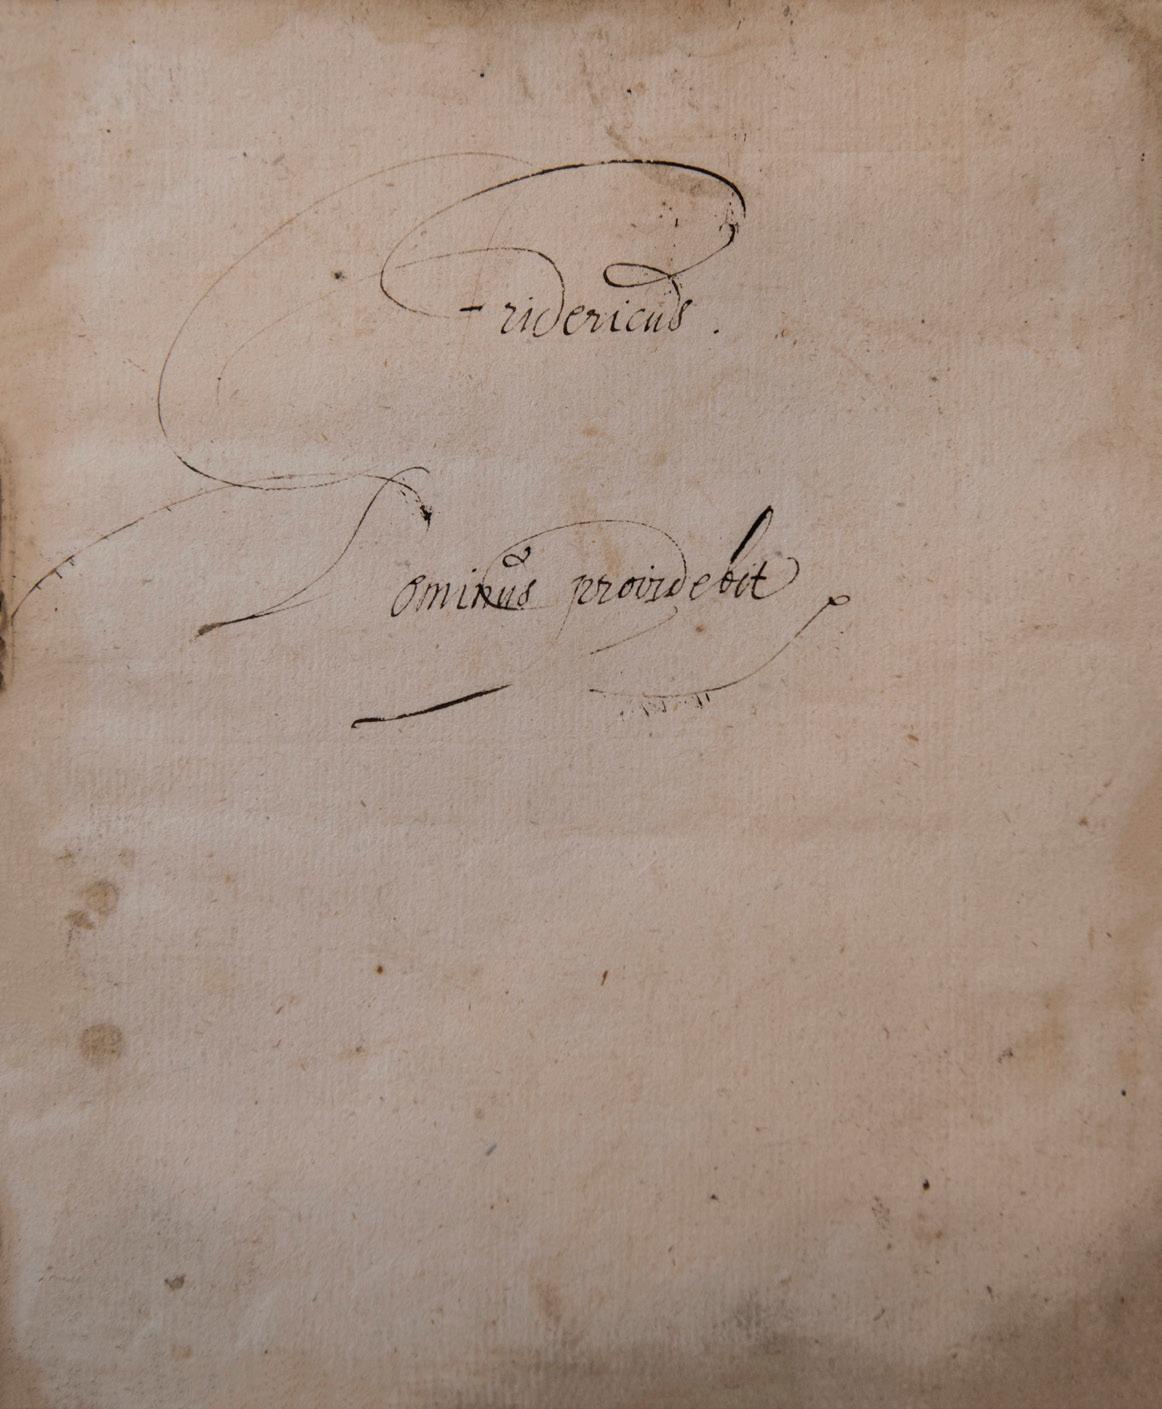 Fridericus.
Dominus providebit